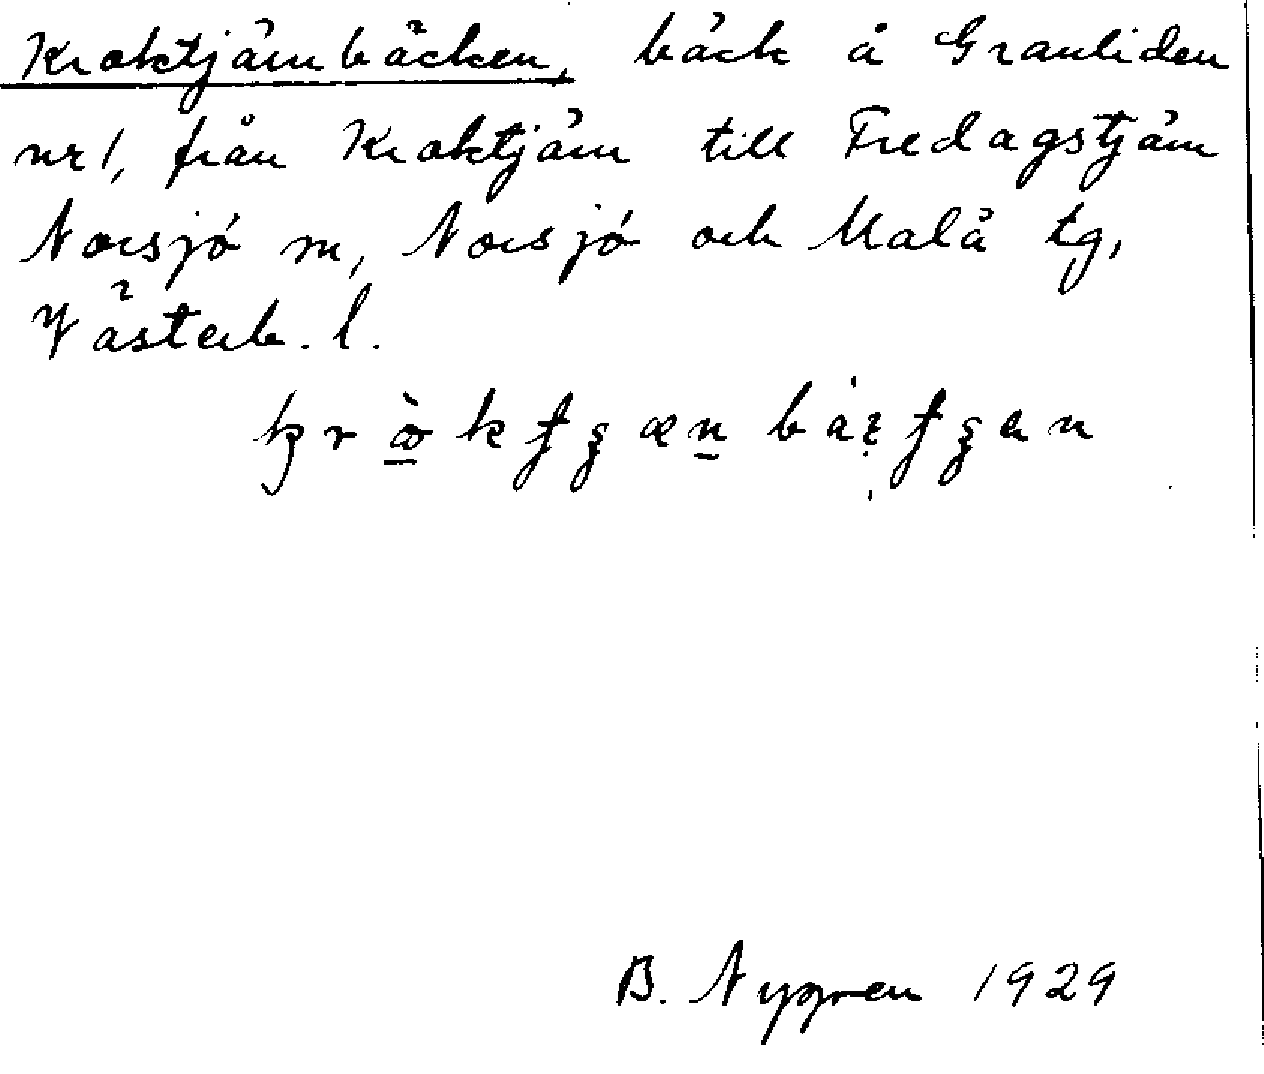 Kroktjärnbäcken, bäck å Granliden
nr 1, från Kroktjärn till Fredagstjärn
Norsjö m, Norsjö och Malå tg,
Västerb. l.
B. Nygren 1929